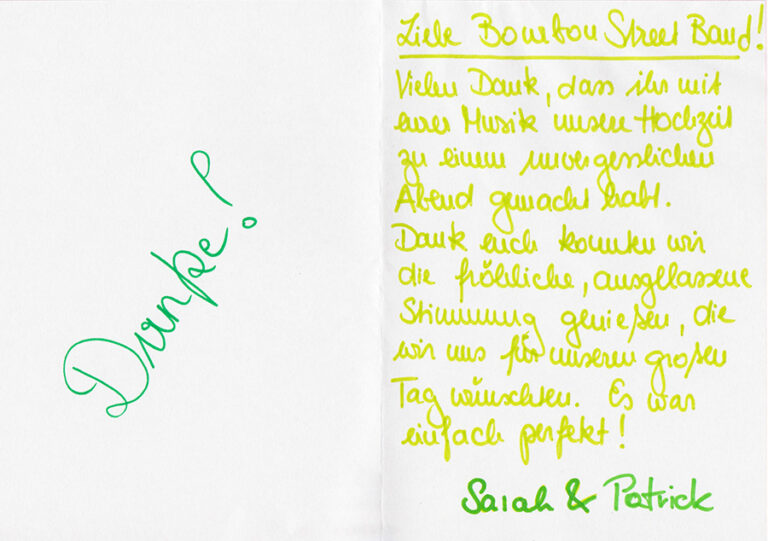 Danke!
Liebe Bourbon Street Band!
Vielen Dank, dass ihr mit
eurer Musik unsere Hochzeit
zu einem unvergesslichen
Abend gemacht habt.
Dank euch konnten wir
die fröhliche, ausgelassene
Stimmung genießen, die
wir uns für unseren großen
Tag wünschten. Es war
einfach perfekt!
Sarah & Patrick